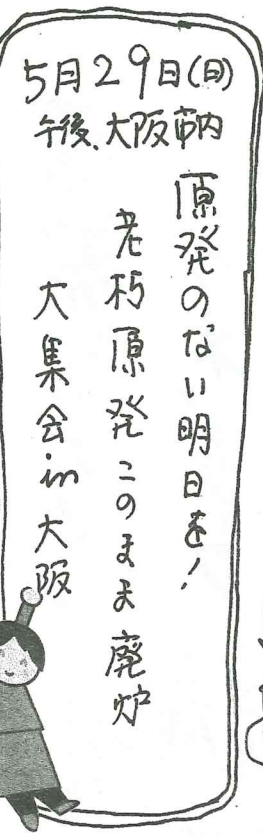 5月29日(日)
午後、大阪市内
原発のない明日を!
老朽原発このまま廃炉
大集会in大阪